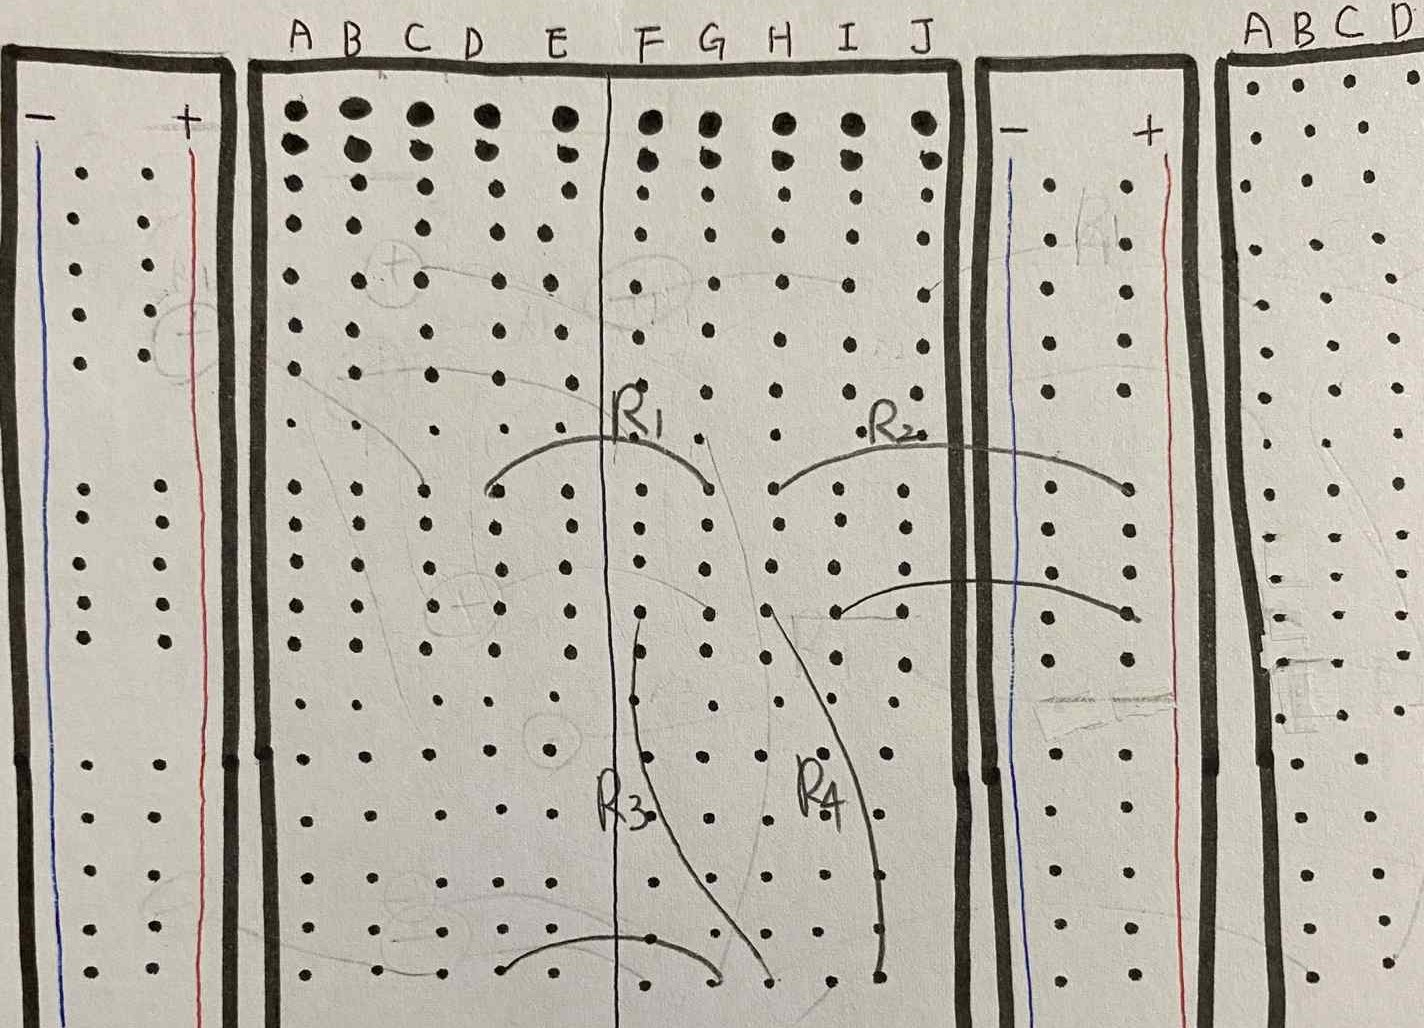 A B C D E F G H I J A B C D
- + - +
R1
R1 R2
R3 R4